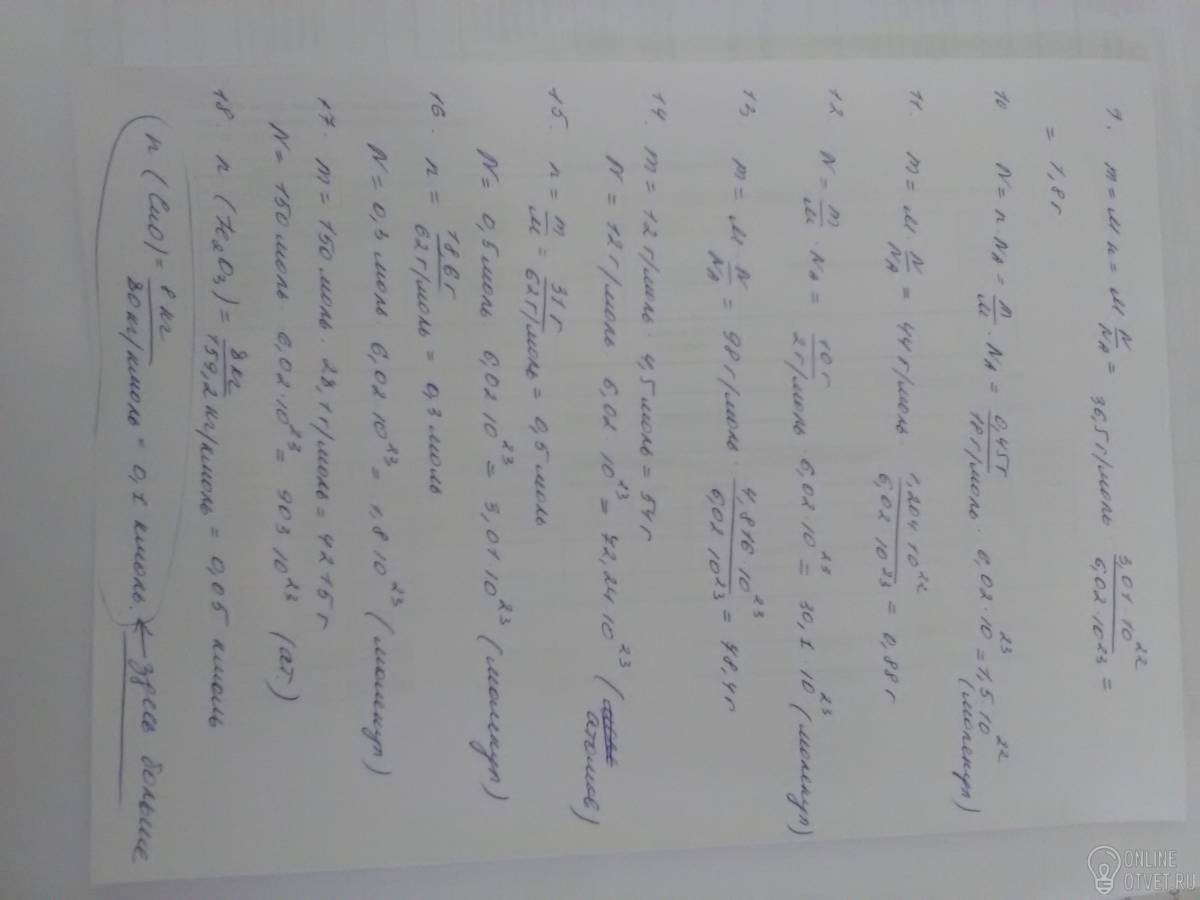 9. m = M n = M N/NA = 36,5 г/моль 3,01 10^22 / 6,02 10^23 =
= 1,8 г
10 N = n NA = m/M · NA = 0,45г / 18 г/моль · 6,02 · 10^23 = 1,5 · 10^22 (молекул)
11. m = M N/NA = 44 г/моль · 1,204 10^22 / 6,02 10^23 = 0,88 г
12 N = m/M · NA = 10 г / 2 г/моль · 6,02 · 10^23 = 30,1 · 10^23 (молекул)
13, m = M N/NA = 98 г/моль · 4,816 10^23 / 6,02 10^23 = 78,4 г
14. m = 12 г/моль · 4,5 моль = 54 г
N = 12 г/моль 6,02 · 10^23 = 72,24 10^23 ( атомов)
15. n = m/M = 31 г / 62 г/моль = 0,5 моль
N = 0,5 моль 6,02 10^23 = 3,01 10^23 (молекул)
16. n = 18 6 г / 62 г/моль = 0,3 моль
N = 0,3 моль · 6,02 10^23 = 1,8 10^23 (молекул)
17. m = 150 моль · 28,1 г/моль = 4215 г
N = 150 моль 6,02 · 10^23 = 903 10^23 (ат.)
18. n (Fe2O3) = 8 кг / 159,2 кг/кмоль = 0,05 кмоль
n (CuO) = 8 кг / 80 кг/кмоль = 0,1 кмоль. ← здесь больше
ONLINE
OTVET.RU